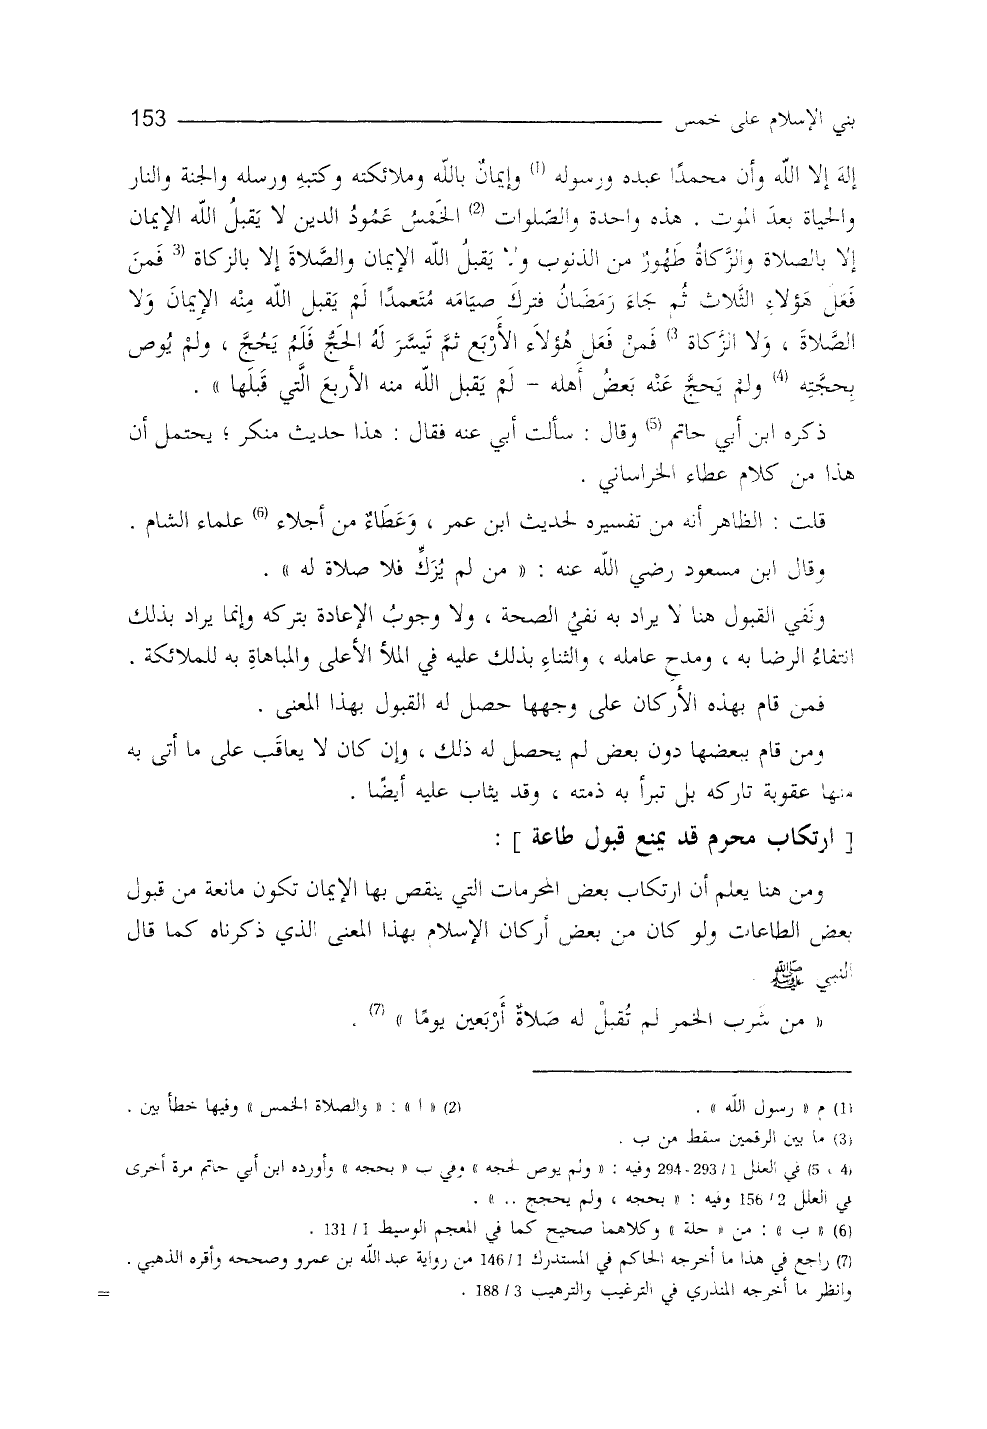 بني الإسلام على خمس 153
إلهَ إلا اللّه وأن محمدًا عبده ورسوله (1) وإيمانٌ باللّه وملائكته وكتبهِ ورسله والجنة والنار
والحياة بعدَ الموت . هذه واحدة والصّلوات (2) الخَمْسُ عَمُودُ الدين لا يَقبلُ اللّه الإيمان
إلا بالصلاة والزَّكاةُ طَهُورٌ من الذنوب ولا يَقبلُ اللّه الإيمان والصَّلاةَ إلا بالزكاة (3 فَمنَ
فَعَلَ هَؤلاءِ الثَّلاث ثُم جَاءَ رَمَضَانُ فتركَ صيَامَه مُتَعمدًا لَمْ يَقبل اللّه مِنْه الإِيمَانَ وَلا
الصَّلاةَ ، وَلا الزَّكاة 3) فَمنْ فَعَل هُؤلاَء الأَرْبَع ثمَّ تَيسَّرَ لَهُ الحَجُّ فَلَمُ يَحُجَّ ، ولمْ يُوص
بِحجَّتِه (4) ولمْ يَحجَّ عَنْه بَعضُ أَهله – لَمْ يَقبل اللّه منه الأربعَ الَّتي قَبلَها » .
ذكره ابن أبي حاتم (5) وقال : سألت أبي عنه فقال : هذا حديث منكر ؛ يحتمل أن
هذا من كلام عطاء الخراساني .
قلت : الظاهر أنه من تفسيره لحديث ابن عمر ، وَعَطَاءٌ من أجلاء (6) علماء الشام .
وقال ابن مسعود رضي اللّه عنه : « من لم يُزَكِّ فلا صلاة له » .
ونَفي القبول هنا لا يراد به نفيُ الصحة ، ولا وجوبُ الإعادة بتركه وإنما يراد بذلك
انتفاءُ الرضا به ، ومدحِ عامله ، والثناءِ بذلك عليه في الملأ الأعلى والمباهاةِ به للملائكة .
فمن قام بهذه الأركان على وجهها حصل له القبول بهذا المعنى .
ومن قام ببعضها دون بعض لم يحصل له ذلك ، وإن كان لا يعاقَب على ما أتى به
منها عقوبة تاركه بل تبرأ به ذمته ، وقد يثاب عليه أيضًا .
[ ارتكاب محرم قد يمنع قبول طاعة ] :
ومن هنا يعلم أن ارتكاب بعض المحرمات التي ينقص بها الإيمان تكون مانعة من قبول
بعض الطاعات ولو كان من بعض أركان الإسلام بهذا المعنى الذي ذكرناه كما قال
النبي ﷺ .
« من شَرب الخمر لم تُقبلْ له صَلاةٌ أَرْبَعين يومًا » (7) .
(1) م « رسول اللّه » . (2) « ا » : « والصلاة الخمس » وفيها خطأ بين .
(3) ما بين الرقمين سقط من ب .
(4 ، 5) في العلل 1 / 293 - 294 وفيه : « ولم يوص لحجه » وفي ب « بحجه » وأورده ابن أبي حاتم مرة أخرى
في العلل 2 / 156 وفيه : « بحجه ، ولم يحجج .. » .
(6) « ب » : من « حلة » وكلاهما صحيح كما في المعجم الوسيط 1 / 131 .
(7) راجع في هذا ما أخرجه الحاكم في المستدرك 1 / 146 من رواية عبد اللّه بن عمرو وصححه وأقره الذهبي .
وانظر ما أخرجه المنذري في الترغيب والترهيب 3 / 188 . =